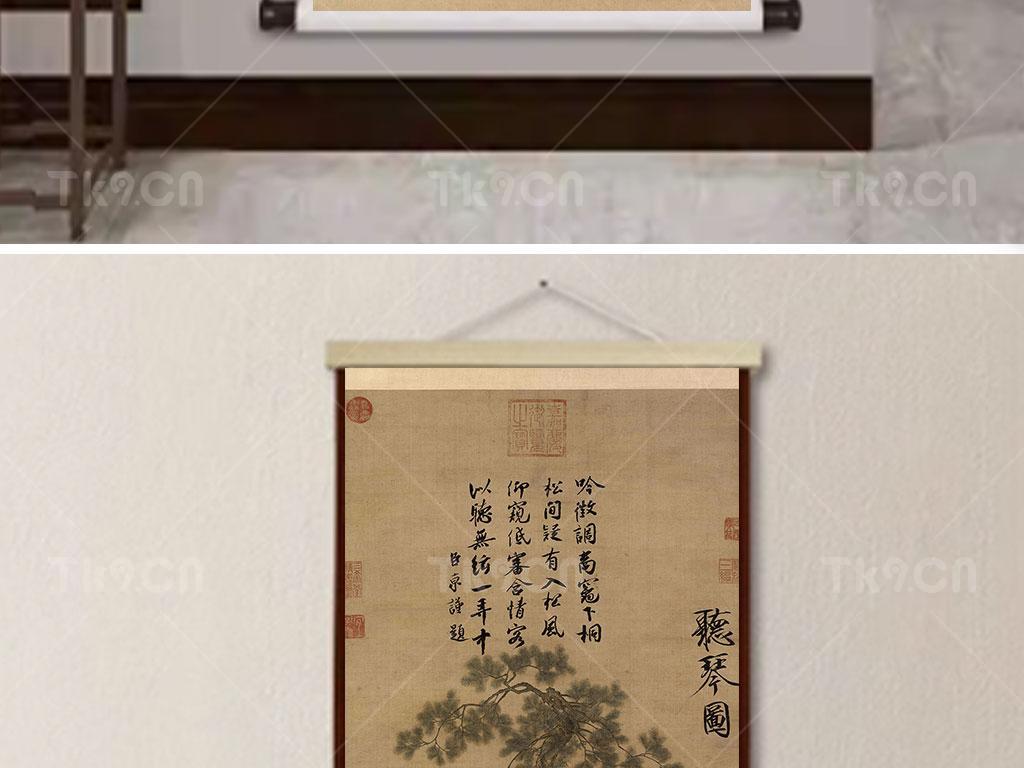 Tk9.CN
Tk9.CN
Tk9.CN
聽琴圖
吟徵調商竈下桐
松間疑有入松風
仰窺低審含情客
以聽無絃一弄中
臣京謹題
Tk9.CN
Tk9.CN
Tk9.CN